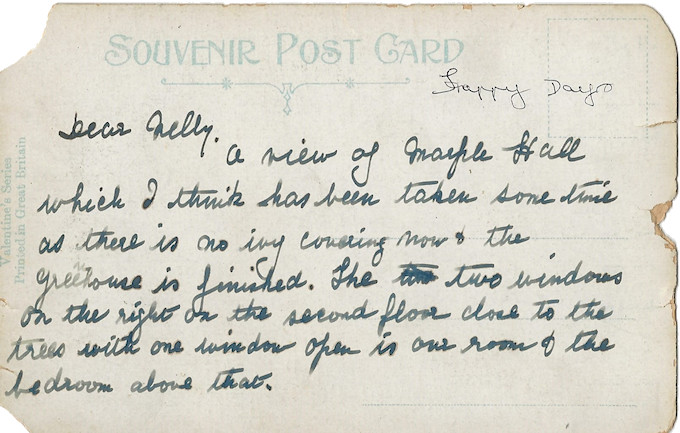 SOUVENIR POST CARD
Happy Days
Valentine's Series
Printed in Great Britain
Dear Nelly.
A view of Marple Hall
which I think has been taken some time
as there is no ivy covering now & the
Greenhouse is finished. The two windows
on the right on the second floor close to the
trees with one window open is our room & the
bedroom above that.